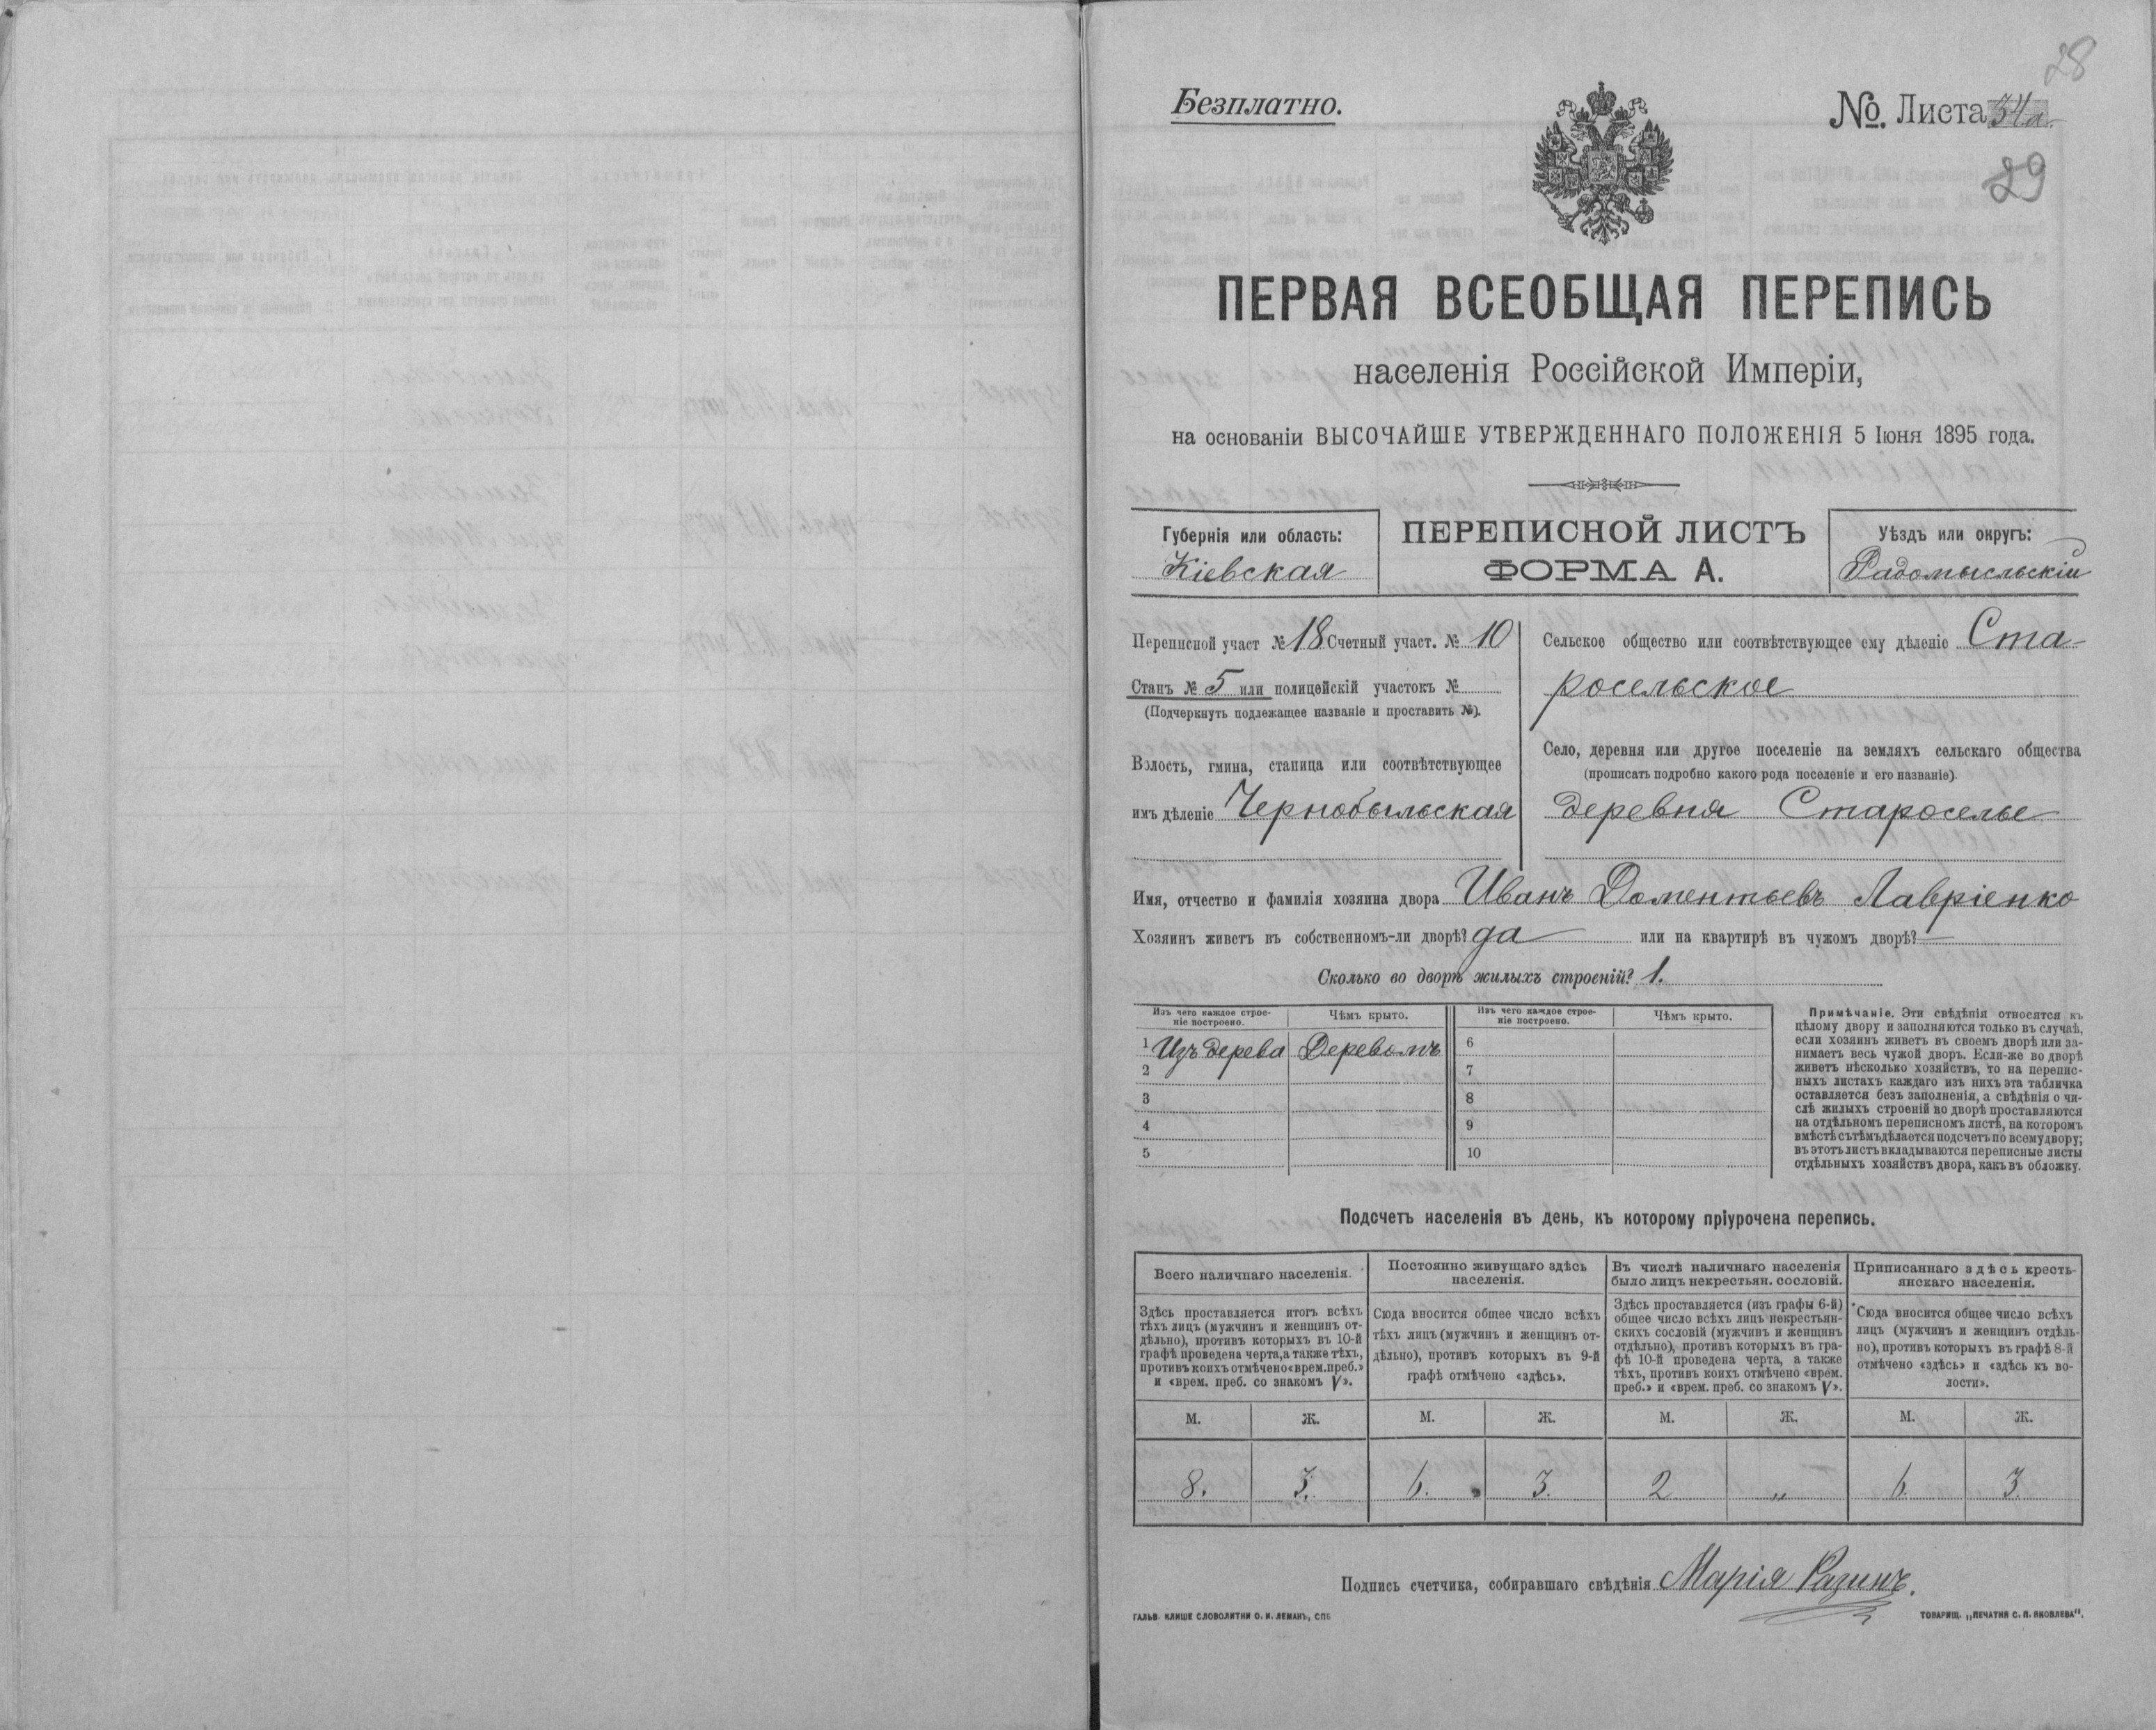 28
Безплатно.
№. Листа 34а.
29
ПЕРВАЯ ВСЕОБЩАЯ ПЕРЕПИСЬ
населенія Россійской Имперіи,
на основаніи ВЫСОЧАЙШЕ УТВЕРЖДЕННАГО ПОЛОЖЕНІЯ 5 Іюня 1895 года.
Губернія или область:
Кіевская
ПЕРЕПИСНОЙ ЛИСТЪ
ФОРМА А.
Уѣздъ или округъ:
Радомысльскій
Переписной участ № 18 Счетный участ. № 10
Станъ № 5 или полицейскій участокъ №
(Подчеркнуть подлежащее названіе и проставить №).
Волость, гмина, станица или соотвѣтствующее
имъ дѣленіе Чернобыльская
Сельское общество или соотвѣтствующее ему дѣленіе Ста-
росельское
Село, деревня или другое поселеніе на земляхъ сельскаго общества
(прописать подробно какого рода поселеніе и его названіе)
деревня Староселье
Имя, отчество и фамилія хозяина двора Иванъ Доментьевъ Лавріенко
Хозяинъ живетъ въ собственномъ-ли дворѣ? да или на квартирѣ въ чужомъ дворѣ? —
Сколько во дворѣ жилыхъ строеній? 1.
Изъ чего каждое строе-
ніе построено.
Чѣмъ крыто.
1 Изъ дерева Деревомъ
2
3
4
5
Изъ чего каждое строе-
ніе построено.
Чѣмъ крыто.
6
7
8
9
10
Примѣчаніе. Эти свѣдѣнія относятся къ
цѣлому двору и заполняются только въ случаѣ,
если хозяинъ живетъ въ своемъ дворѣ или за-
нимаетъ весь чужой дворъ. Если-же во дворѣ
живетъ нѣсколько хозяйствъ, то на перепис-
ныхъ листахъ каждаго изъ нихъ эта табличка
оставляется безъ заполненія, а свѣдѣнія о чи-
слѣ жилыхъ строеній во дворѣ проставляются
на отдѣльномъ переписномъ листѣ, на которомъ
вмѣстѣ съ тѣмъ дѣлается подсчетъ по всему двору;
въ этотъ листъ вкладываются переписные листы
отдѣльныхъ хозяйствъ двора, какъ въ обложку.
Подсчетъ населенія въ день, къ которому пріурочена перепись.
Всего наличнаго населенія.
Здѣсь проставляется итогъ всѣхъ
тѣхъ лицъ (мужчинъ и женщинъ от-
дѣльно), противъ которыхъ въ 10-й
графѣ проведена черта, а также тѣхъ,
противъ коихъ отмѣчено «врем. преб.»
и «врем. преб. со знакомъ V».
Постоянно живущаго здѣсь
населенія.
Сюда вносится общее число всѣхъ
тѣхъ лицъ (мужчинъ и женщинъ от-
дѣльно), противъ которыхъ въ 9-й
графѣ отмѣчено «здѣсь».
Въ числѣ наличнаго населенія
было лицъ некрестьян. сословій.
Здѣсь проставляется (изъ графы 6-й)
общее число всѣхъ лицъ некрестьян-
скихъ сословій (мужчинъ и женщинъ
отдѣльно), противъ которыхъ въ гра-
фѣ 10-й проведена черта, а также
тѣхъ, противъ коихъ отмѣчено «врем.
преб.» и «врем. преб. со знакомъ V».
Приписаннаго здѣсь кресть-
янскаго населенія.
Сюда вносится общее число всѣхъ
лицъ (мужчинъ и женщинъ отдѣль-
но), противъ которыхъ въ графѣ 8-й
отмѣчено «здѣсь» и «здѣсь къ во-
лости».
М. Ж. М. Ж. М. Ж. М. Ж.
8. 3. 6. 3. 2 „ 6. 3.
Подпись счетчика, собиравшаго свѣдѣнія Марія Разинъ.
ГАЛЬВ. КЛИШЕ СЛОВОЛИТНИ О. И. ЛЕМАНЪ, СПБ
ТОВАРИЩ. „ПЕЧАТНЯ С. П. ЯКОВЛЕВА“.